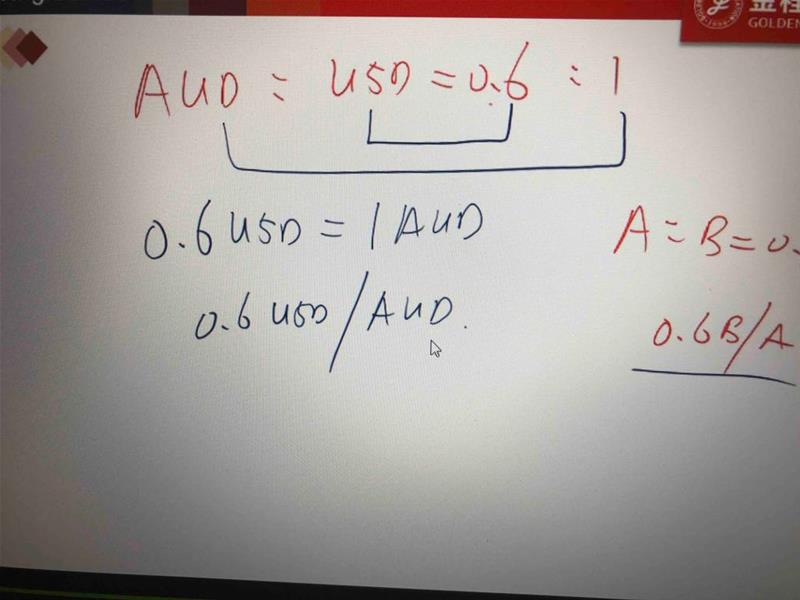 金程
GOLDEN
AUD : USD = 0.6 : 1
0.6 USD = 1 AUD
A = B = 0.
0.6 USD / AUD.
0.6B/A